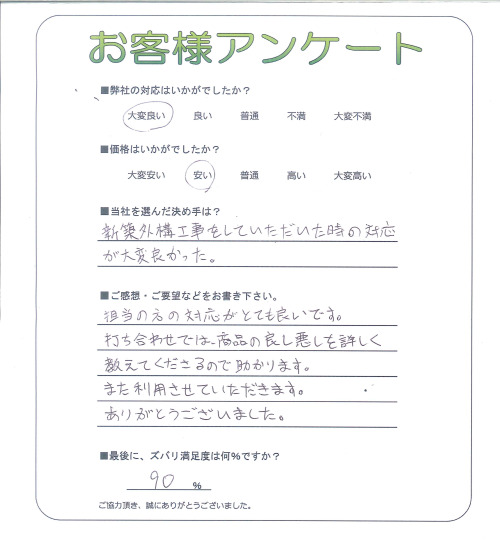 お客様アンケート
■弊社の対応はいかがでしたか？
大変良い 良い 普通 不満 大変不満
■価格はいかがでしたか？
大変安い 安い 普通 高い 大変高い
■当社を選んだ決め手は？
新築外構工事をしていただいた時の対応
が大変良かった。
■ご感想・ご要望などをお書き下さい。
担当の方の対応がとても良いです。
打ち合わせでは、商品の良し悪しを詳しく
教えてくださるので助かります。
また利用させていただきます。
ありがとうございました。
■最後に、ズバリ満足度は何%ですか？
90 %
ご協力頂き、誠にありがとうございました。